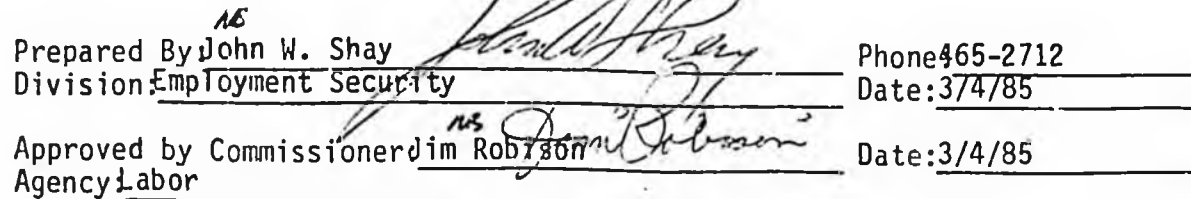 Prepared By: John W. Shay Phone 465-2712
Division: Employment Security Date: 3/4/85
Approved by Commissioner Jim Robison Date: 3/4/85
Agency: Labor